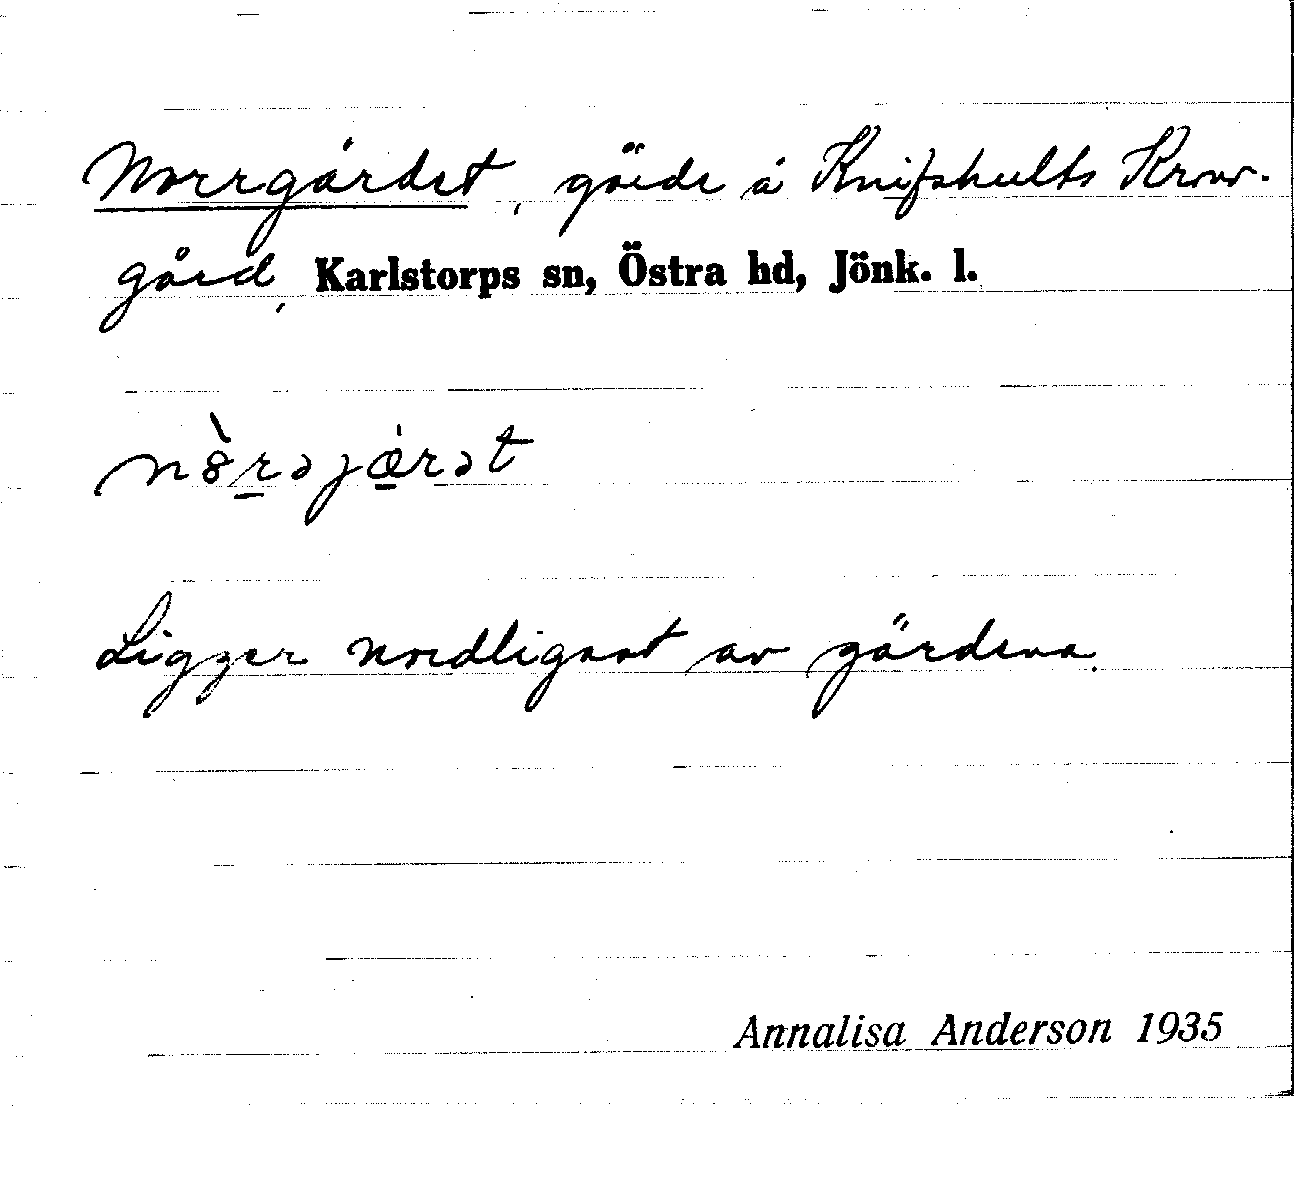 Norrgärdet, gärde å Knifshults Kron-
gård, Karlstorps sn, Östra hd, Jönk. l.
nòrəjǽrət
Ligger nordligast av gärdena.
Annalisa Anderson 1935